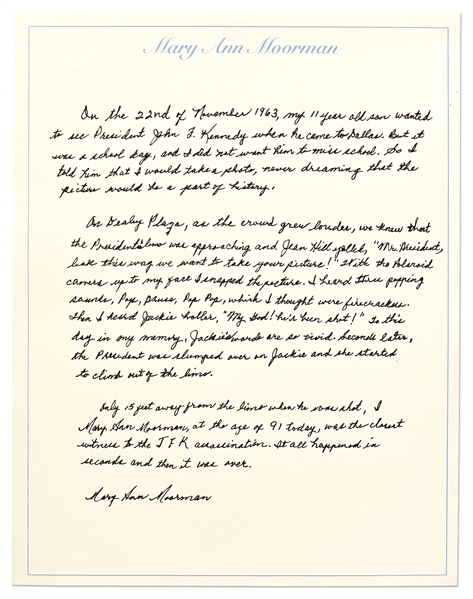 Mary Ann Moorman
On the 22nd of November 1963, my 11 year old son wanted
to see President John F. Kennedy when he came to Dallas. But it
was a school day, and I did not want him to miss school. So I
told him that I would take a photo, never dreaming that the
picture would be a part of history.
On Dealy Plaza, as the crowd grew louder, we knew that
the President's limo was approaching and Jean Hill yelled, "Mr. President,
look this way we want to take your picture!" With the Polaroid
camera up to my face I snapped the picture. I heard three popping
sounds, Pop, Pause, Pop Pop, which I thought were firecrackers.
Then I heard Jackie holler, "My God! he's been shot!" To this
day in my memory, Jackie's words are so vivid. Seconds later,
the President was slumped over on Jackie and she started
to climb out of the limo.
Only 15 feet away from the limo when he was shot, I
Mary Ann Moorman, at the age of 91 today, was the closest
witness to the JFK assassination. It all happened in
seconds and then it was over.
Mary Ann Moorman